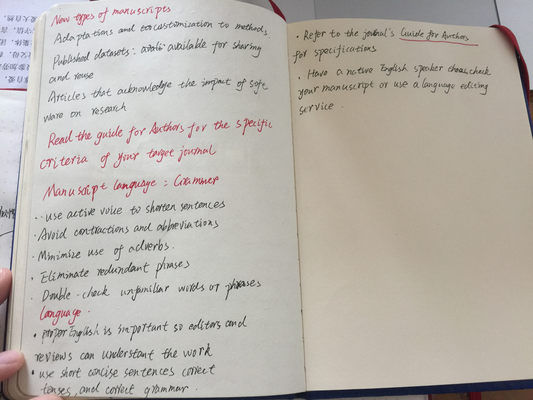 New types of manuscripts
Adaptations and customization to methods
Published datasets: available for sharing
and reuse
Articles that acknowledge the impact of soft
ware on research
Read the guide for Authors for the specific
criteria of your target journal
Manuscript language: Grammer
· use active voice to shorten sentences
· Avoid contractions and abbreviations
· Minimize use of adverbs.
· Eliminate redundant phrases
· Double-check unfamiliar words or phrases
Language.
· proper English is important so editors and
reviews can understant the work
· use short concise sentences correct
tenses, and correct grammar.
· Refer to the journal's Guide for Authors
for specifications.
· Have a native English speaker check
your manuscript or use a language editing
service.